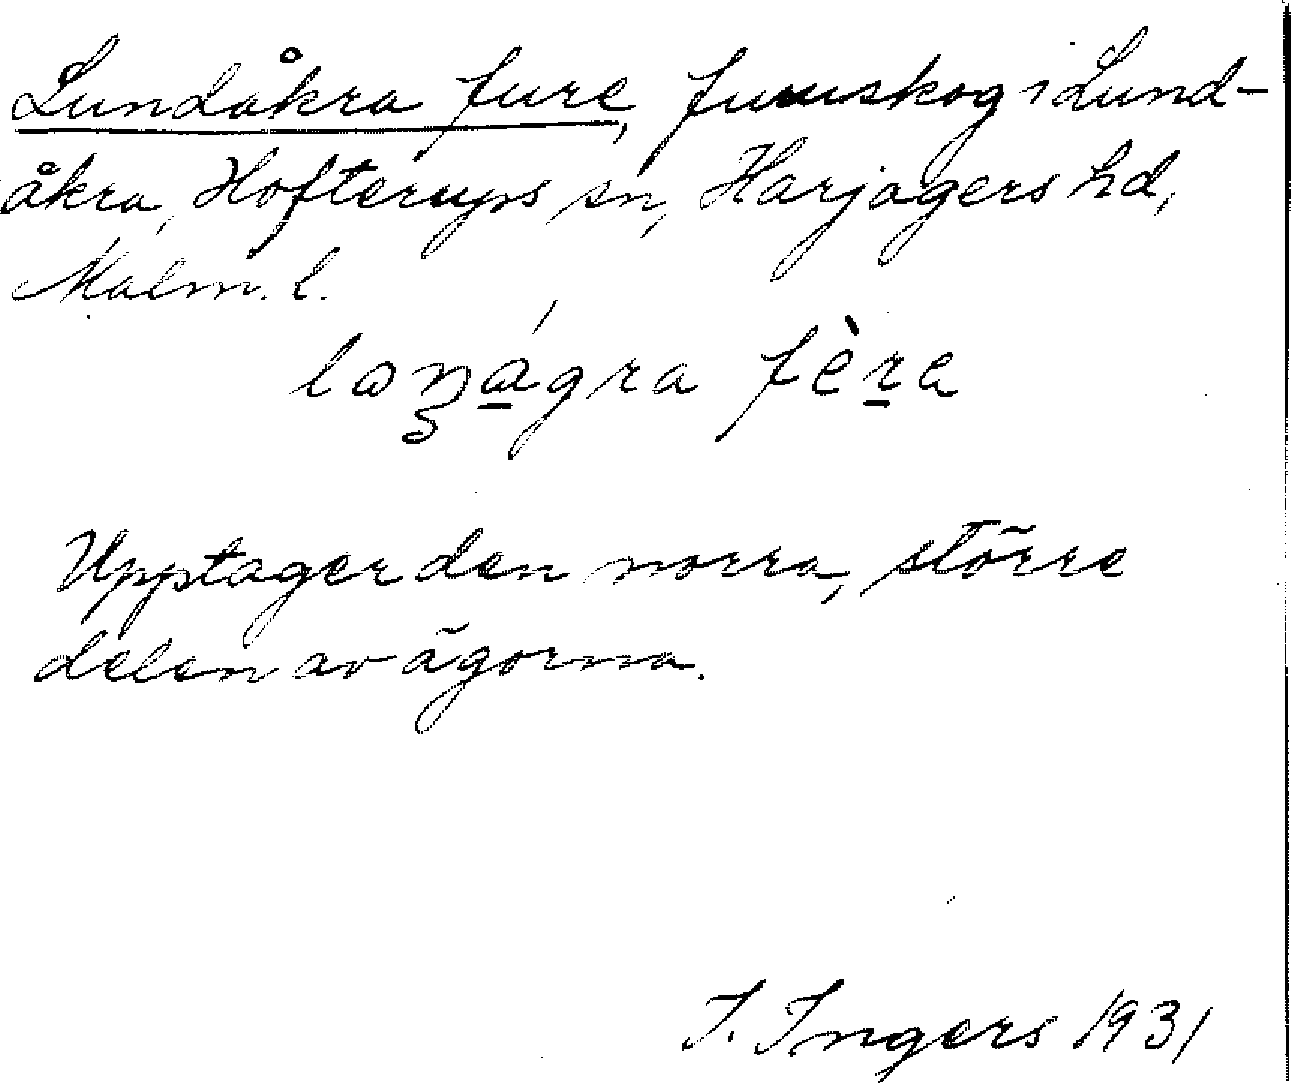 Lundåkra fure, furuskog i Lund-
åkra, Hofterups sn, Harjagers hd,
Malm. l.
fèra
Upptager den norra, större
delen av ägorna.
I. Ingers 1931